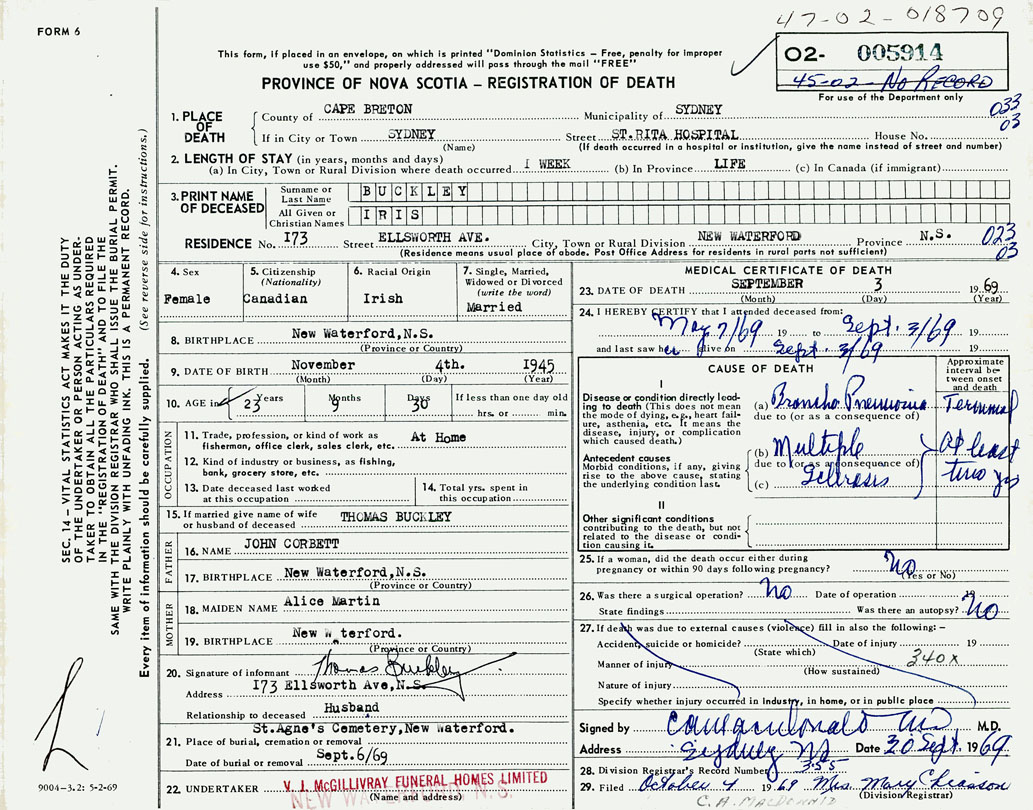 FORM 6
47-02-018709
This form, if placed in an envelope, on which is printed "Dominion Statistics – Free, penalty for improper
use $50," and properly addressed will pass through the mail "FREE"
O2- 005914
45-02- No RECORD
For use of the Department only
PROVINCE OF NOVA SCOTIA – REGISTRATION OF DEATH
1. PLACE OF DEATH
County of CAPE BRETON Municipality of SYDNEY 033
If in City or Town SYDNEY Street ST.RITA HOSPITAL House No. 03
(Name) (If death occurred in a hospital or institution, give the name instead of street and number)
2. LENGTH OF STAY (in years, months and days)
(a) In City, Town or Rural Division where death occurred 1 WEEK (b) In Province LIFE (c) In Canada (if immigrant)
3. PRINT NAME OF DECEASED
Surname or Last Name BUCKLEY
All Given or Christian Names IRIS
RESIDENCE No. 173 Street ELLSWORTH AVE. City, Town or Rural Division NEW WATERFORD Province N.S. 023
(Residence means usual place of abode. Post Office Address for residents in rural parts not sufficient) 03
4. Sex Female
5. Citizenship (Nationality) Canadian
6. Racial Origin Irish
7. Single, Married, Widowed or Divorced (write the word) Married
8. BIRTHPLACE New Waterford,N.S.
(Province or Country)
9. DATE OF BIRTH November 4th. 1945
(Month) (Day) (Year)
10. AGE in Years Months Days If less than one day old
23 9 30 hrs. or min.
OCCUPATION
11. Trade, profession, or kind of work as At Home
fisherman, office clerk, sales clerk, etc.
12. Kind of industry or business, as fishing,
bank, grocery store, etc.
13. Date deceased last worked
at this occupation
14. Total yrs. spent in
this occupation
15. If married give name of wife
or husband of deceased THOMAS BUCKLEY
FATHER
16. NAME JOHN CORBETT
17. BIRTHPLACE New Waterford,N.S.
(Province or Country)
MOTHER
18. MAIDEN NAME Alice Martin
19. BIRTHPLACE New W terford.
(Province or Country)
20. Signature of informant Thomas Buckley
Address 173 Ellsworth Ave,N.S.
Relationship to deceased Husband
St.Agne's Cemetery,New Waterford.
21. Place of burial, cremation or removal
Date of burial or removal Sept.6/69
22. UNDERTAKER V. J. McGILLIVRAY FUNERAL HOMES LIMITED
(Name and address)
NEW WATERFORD, N.S.
MEDICAL CERTIFICATE OF DEATH
23. DATE OF DEATH SEPTEMBER 3 1969
(Month) (Day) (Year)
24. I HEREBY CERTIFY that I attended deceased from:
May 7/69 19 to Sept. 3/69 19
and last saw her alive on Sept. 3/69 19
CAUSE OF DEATH
Approximate interval between onset and death
I
Disease or condition directly leading to death (This does not mean the mode of dying, e.g., heart failure, asthenia, etc. It means the disease, injury, or complication which caused death.)
(a) Broncho Pneumonia Terminal
due to (or as a consequence of)
Antecedent causes
Morbid conditions, if any, giving rise to the above cause, stating the underlying condition last.
(b) Multiple At least
due to (or as a consequence of)
(c) Sclerosis two yrs
II
Other significant conditions
contributing to the death, but not related to the disease or condition causing it.
25. If a woman, did the death occur either during
pregnancy or within 90 days following pregnancy? No
(Yes or No)
26. Was there a surgical operation? No Date of operation 19
State findings Was there an autopsy? No
27. If death was due to external causes (violence) fill in also the following: –
Accident, suicide or homicide? Date of injury 19
(State which) 340x
Manner of injury
(How sustained)
Nature of injury
Specify whether injury occurred in Industry, in home, or in public place
Signed by M.D.
Address Sydney NS Date 20 Sept. 1969
28. Division Registrar's Record Number 355
29. Filed October 4 1969 Mrs. Mary Chiasson
(Division Registrar)
C. A. MACDONALD
SEC. 14 – VITAL STATISTICS ACT MAKES IT THE DUTY
OF THE UNDERTAKER OR PERSON ACTING AS UNDER-
TAKER TO OBTAIN ALL THE PARTICULARS REQUIRED
IN THE "REGISTRATION OF DEATH" AND TO FILE THE
SAME WITH THE DIVISION REGISTRAR WHO SHALL ISSUE THE BURIAL PERMIT.
WRITE PLAINLY WITH UNFADING INK. THIS IS A PERMANENT RECORD.
Every item of information should be carefully supplied. (See reverse side for instructions.)
9004-3.2: 5-2-69